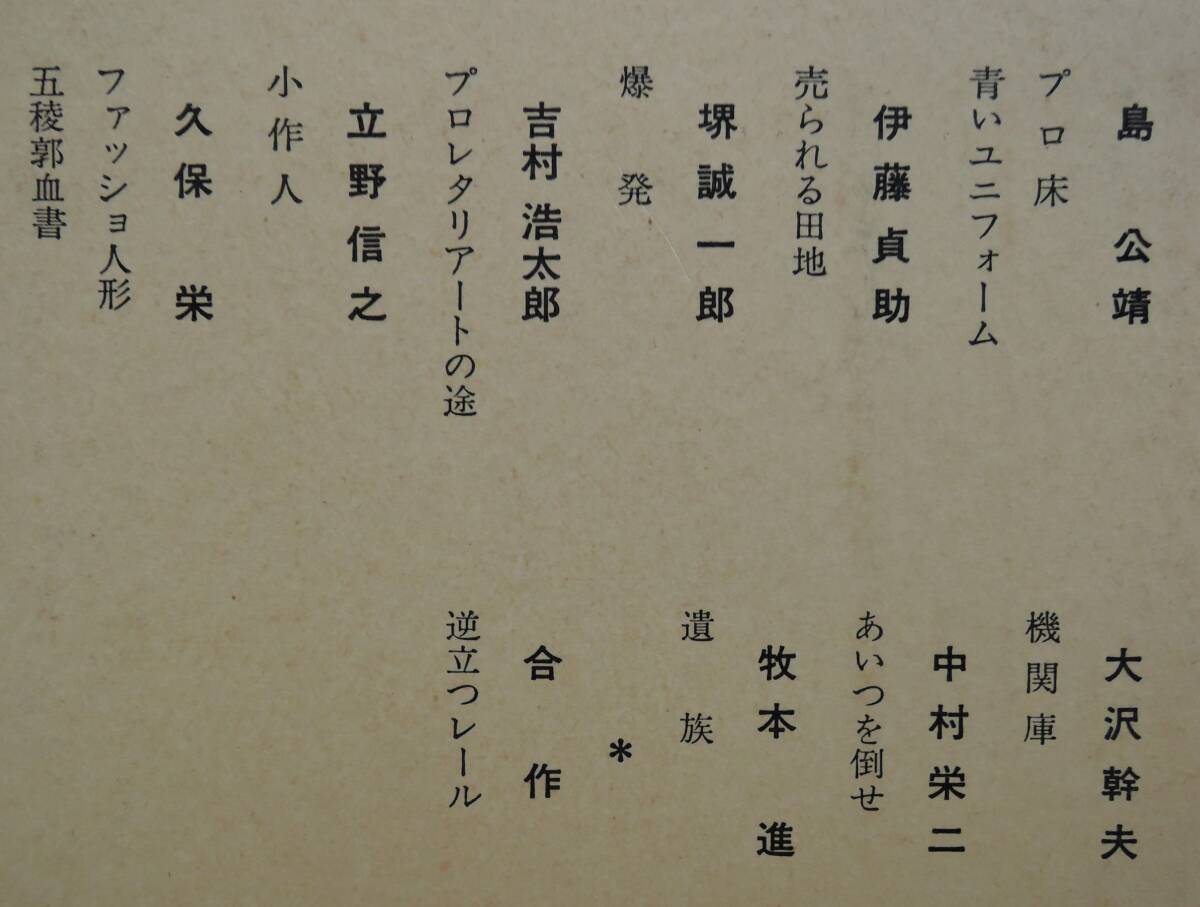 島公靖
プロ床
青いユニフォーム
伊藤貞助
売られる田地
堺誠一郎
爆発
吉村浩太郎
プロレタリアートの途
立野信之
小作人
久保栄
ファッショ人形
五稜郭血書
大沢幹夫
機関庫
中村栄二
あいつを倒せ
牧本進
遺族
*
合作
逆立つレール